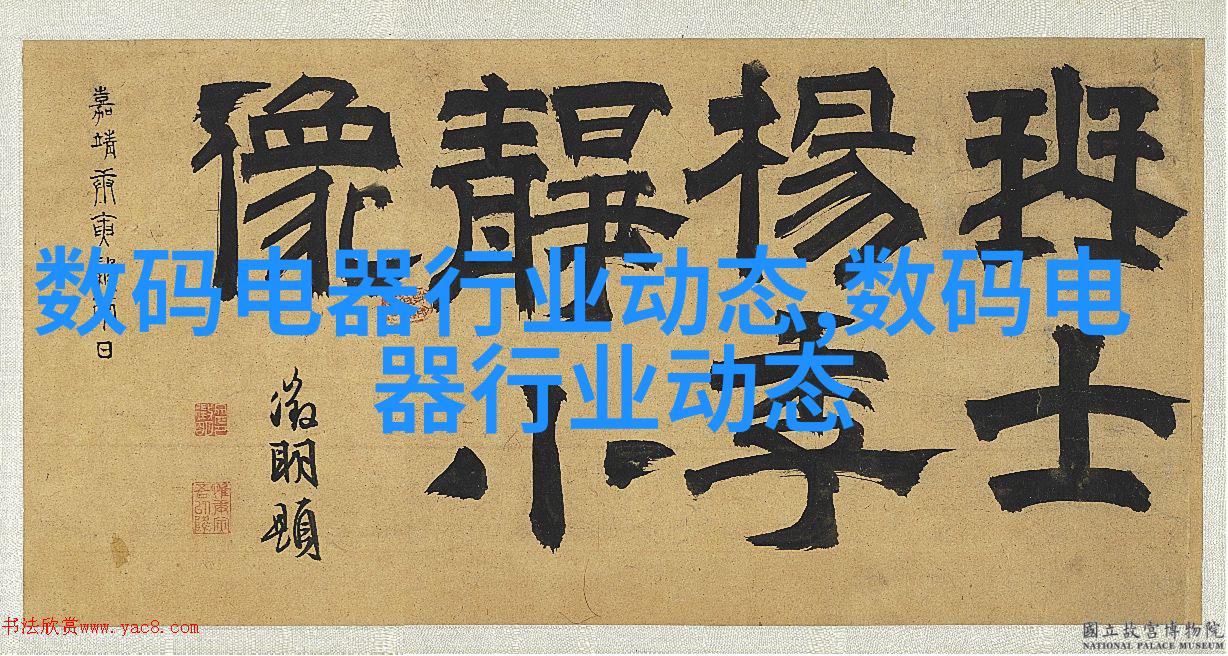 数码电器行业动态,数码电
器行业动态
班士
楊季
靜小
像
嘉靖庚寅日
徵明題
书法欣赏www.yac8.com
國立故宮博物院
NATIONAL PALACE MUSEUM